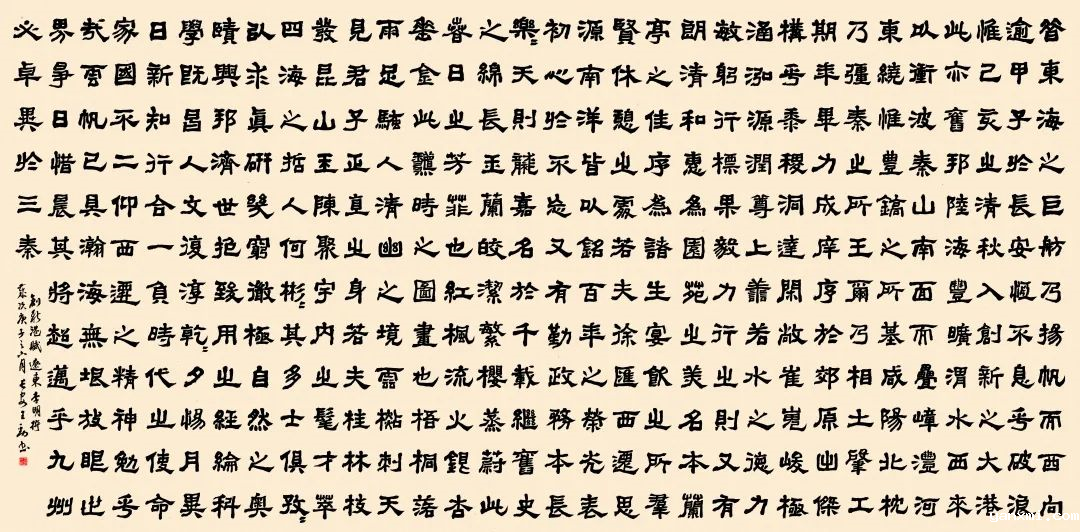 昝東海之巨舫乃揚帆而西向
逾甲子於長安恆不息乎破浪
惟己亥之清秋入創新之大港
此亦舊邦陸海豐曠渭水西來
以衝波秦山南面而疊嶂灃河
東繞惟豐鎬之所基咸陽北枕
乃疆秦之所王爾乃相土肇工
期年畢力成庠序於郊原出傑
構乎黍稷洞達閑敞崔嵬峻極
涵泓源潤尊上善若水之德力
敏躬行標果毅力行之則又有
朗清和惠為園苑之美名本蘭
亭之佳序為諳生宴飲之所羣
賢休憩之處若夫徐匯西遷思
源南洋皆以銘百年之榮光表
初心於不忘又有勤政務本長
樂〻天則龍嘉名於千載繼舊史
之綿長玉蘭皎潔繁櫻蒸蔚此
春日之芳菲也紅楓流火銀杏
壑金此時之圖畫也梧桐落
雨足騷人清幽之境樾刺天
見君子正直之身若夫桂林枝
叢昆山玉陳聚宇內之髦才萃
四海之哲人何彬〻其多士俱孜〻
以求真研窮徹極自然之奧
賾興邦濟世抱致用之經綸科
學既昌人文復淳乾〻夕惕月異
日新知行合一負時代之使命
家國不二仰西遷之精神勉乎
哉雲帆已具瀚海無垠放眼世
界爭日惜晨其將超邁乎九州
必卓異於三秦
創新港賦遼東李明
歲次庚子之六月書